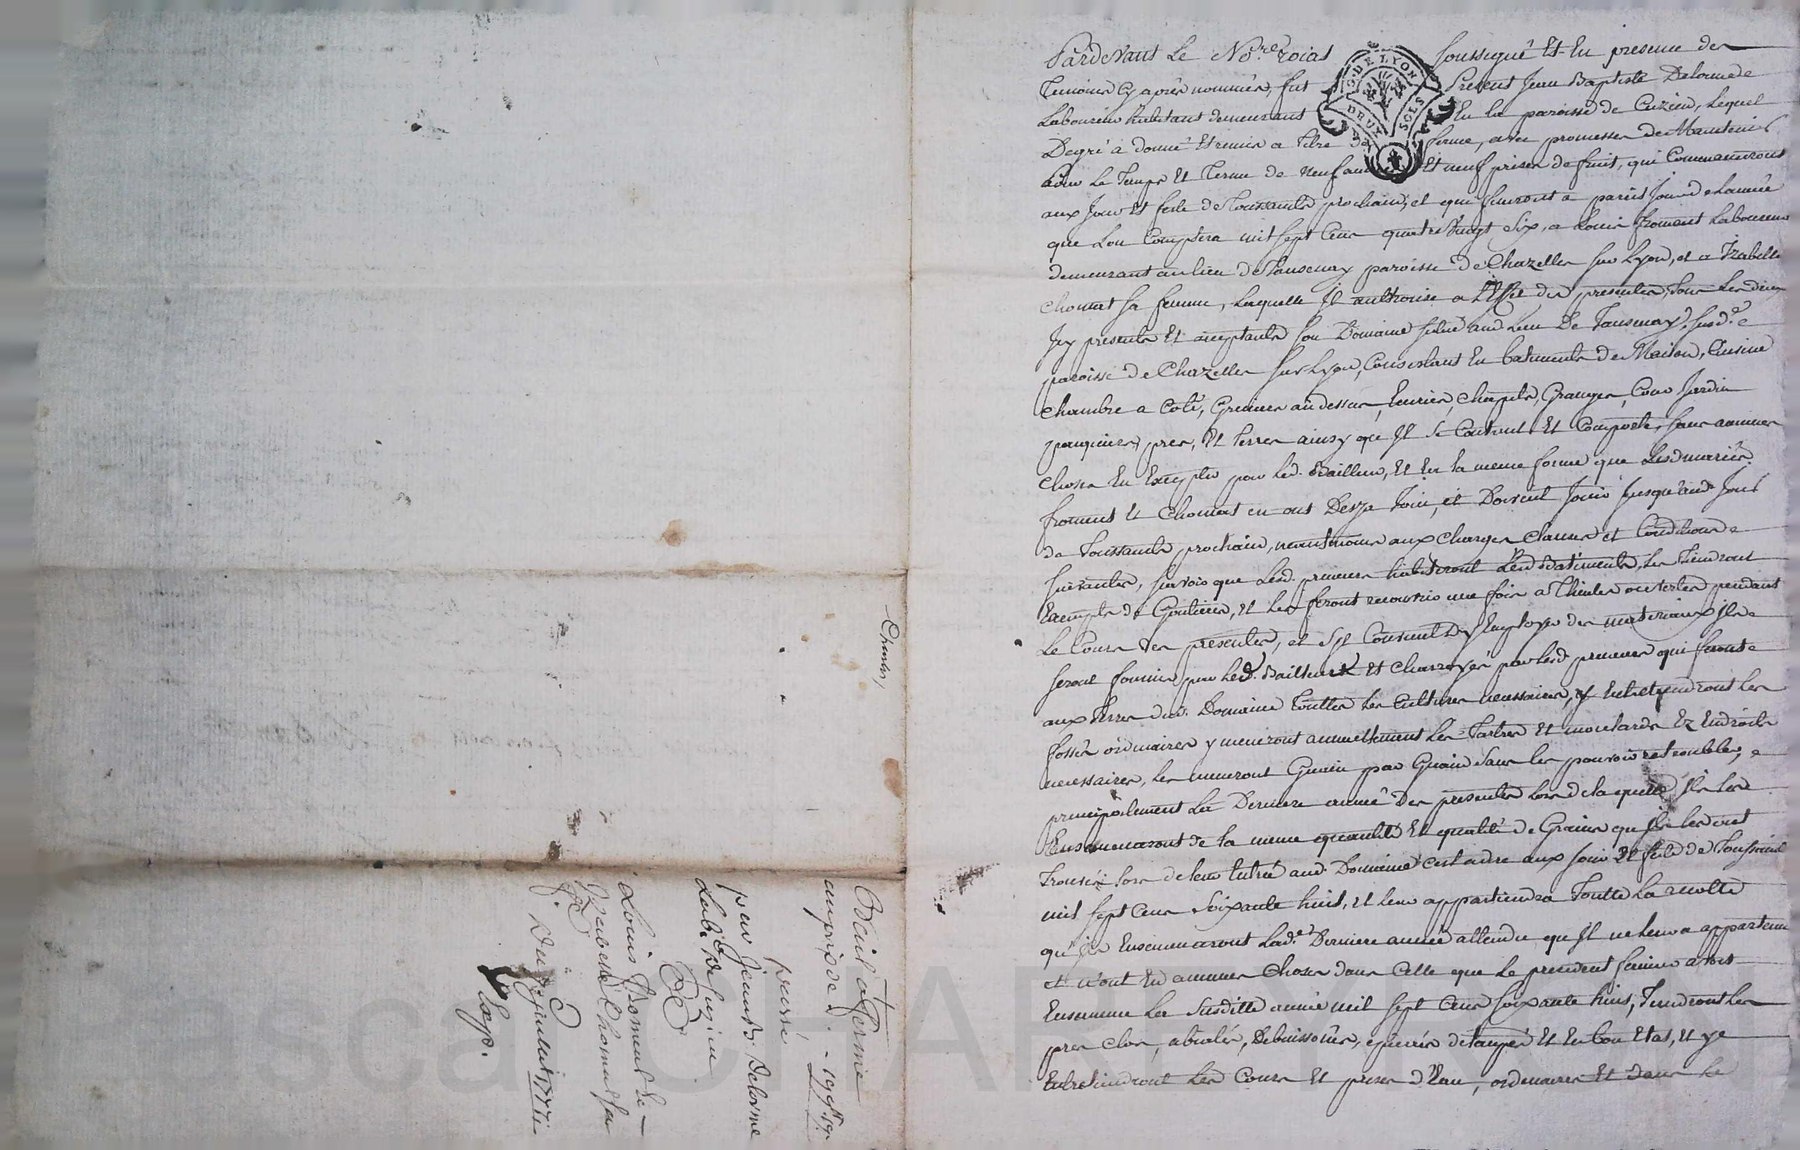 Pardevant Le No.re roial soussigné Et En presence des
Temoins cy après nommés, fut Present Jean Baptiste Delorme
Laboureur habitant demeurant En la paroisse de Cuzieu, Lequel
Degré a donné Et remis a Titre de ferme, avec promesse de Maintenir
pour Le Temps Et Terme de neuf années Et neuf prises de fruit, qui Commanceront
aux Jour Et feste de Toussaints prochain, et qui finiront a pareil Jour de Lannée
que Lon Comptera mil sept Cens quatre Vingt Six, a Louis froment Laboureur
demeurant au lieu de Tausenay paroisse de Chazelles sur Lyon, et a Izabelle
Chomat sa femme, Laquelle Il authorise a L'effet des presentes, Tous Les deux
Icy presents Et aceptants son Domaine situé aud. Lieu De Tausenay susd.e
paroisse de Chazelles sur Lyon, Consistant En batiments de Maison, Cuisine
chambre a Coté, Greniers audessus, Ecuries, Chapits, Granges, Cour Jardin
paquiers, prés, Et terres ainsy qu'Il se Contient Et Comporte, sans aucunes
choses En Excepter par Led. Bailleur, Et En la meme forme que Lesd mariés
froment Et Chomat en ont Deja Joui, et Doivent Jouir jusqu'aud. Jour
de Toussaints prochain, neantmoins aux Charges Clauses et Conditions
suivantes, scavoir que Lesd. preneurs habiteront Lesd Batiments, Les Tiendront
Exempts de Goutieres, et Les feront recouvrir une fois a Thuiles ouvertes pendant
Le Cours des presentes, et s'Il Convient D'y Employer des materiaux Ils
seront fournis par Led. Bailleur Et Charroyés par Lesd. preneurs qui feront
aux terres dud. Domaine Toutes Les Cultures necessaires, y Entretiendront Les
fossés ordinaires y meneront annuellement Les Tartres Et moutardes Ez Endroits
necessaires, Les sumeront Guain par Guain sans Les pouvoir retroubler,
principalement La Derniere année Des presentes Lors de laquelle Ils Les
Ensemenceront de la meme quantité Et qualité de Grains qu'Ils Les ont
Trouvés Lors de leur Entrée aud. Domaine c'est adire aux jour Et feste de Toussaint
mil sept Cens Soixante huit, et leur appartiendra Toutte La recolte
qu'Ils Ensemenceront Lad.e Derniere année attendu qu'Il ne Leur a appartenu
et n'ont Eu aucunes choses dans Celle que Le precedent fermier avoit
Ensemencé La Susditte année mil sept Cens soixante huit, Tiendront Les
prés Clos, abialés, Debuissonnés, épierrés détaupés Et En bon Etat, et y
Entretiendront Les Cours Et prises d'Eau, ordinaires Et dans Le
G. DE LYON
DEUX SOLS
Bail a ferme
au prix de
passé
par Jean B. Delorme
Lab. de Cuzieu
a
Louis froment de
Izabelle Chomat sa
fe
Du 9 Juillet 1777
Exp.
Pascal CHAPELON